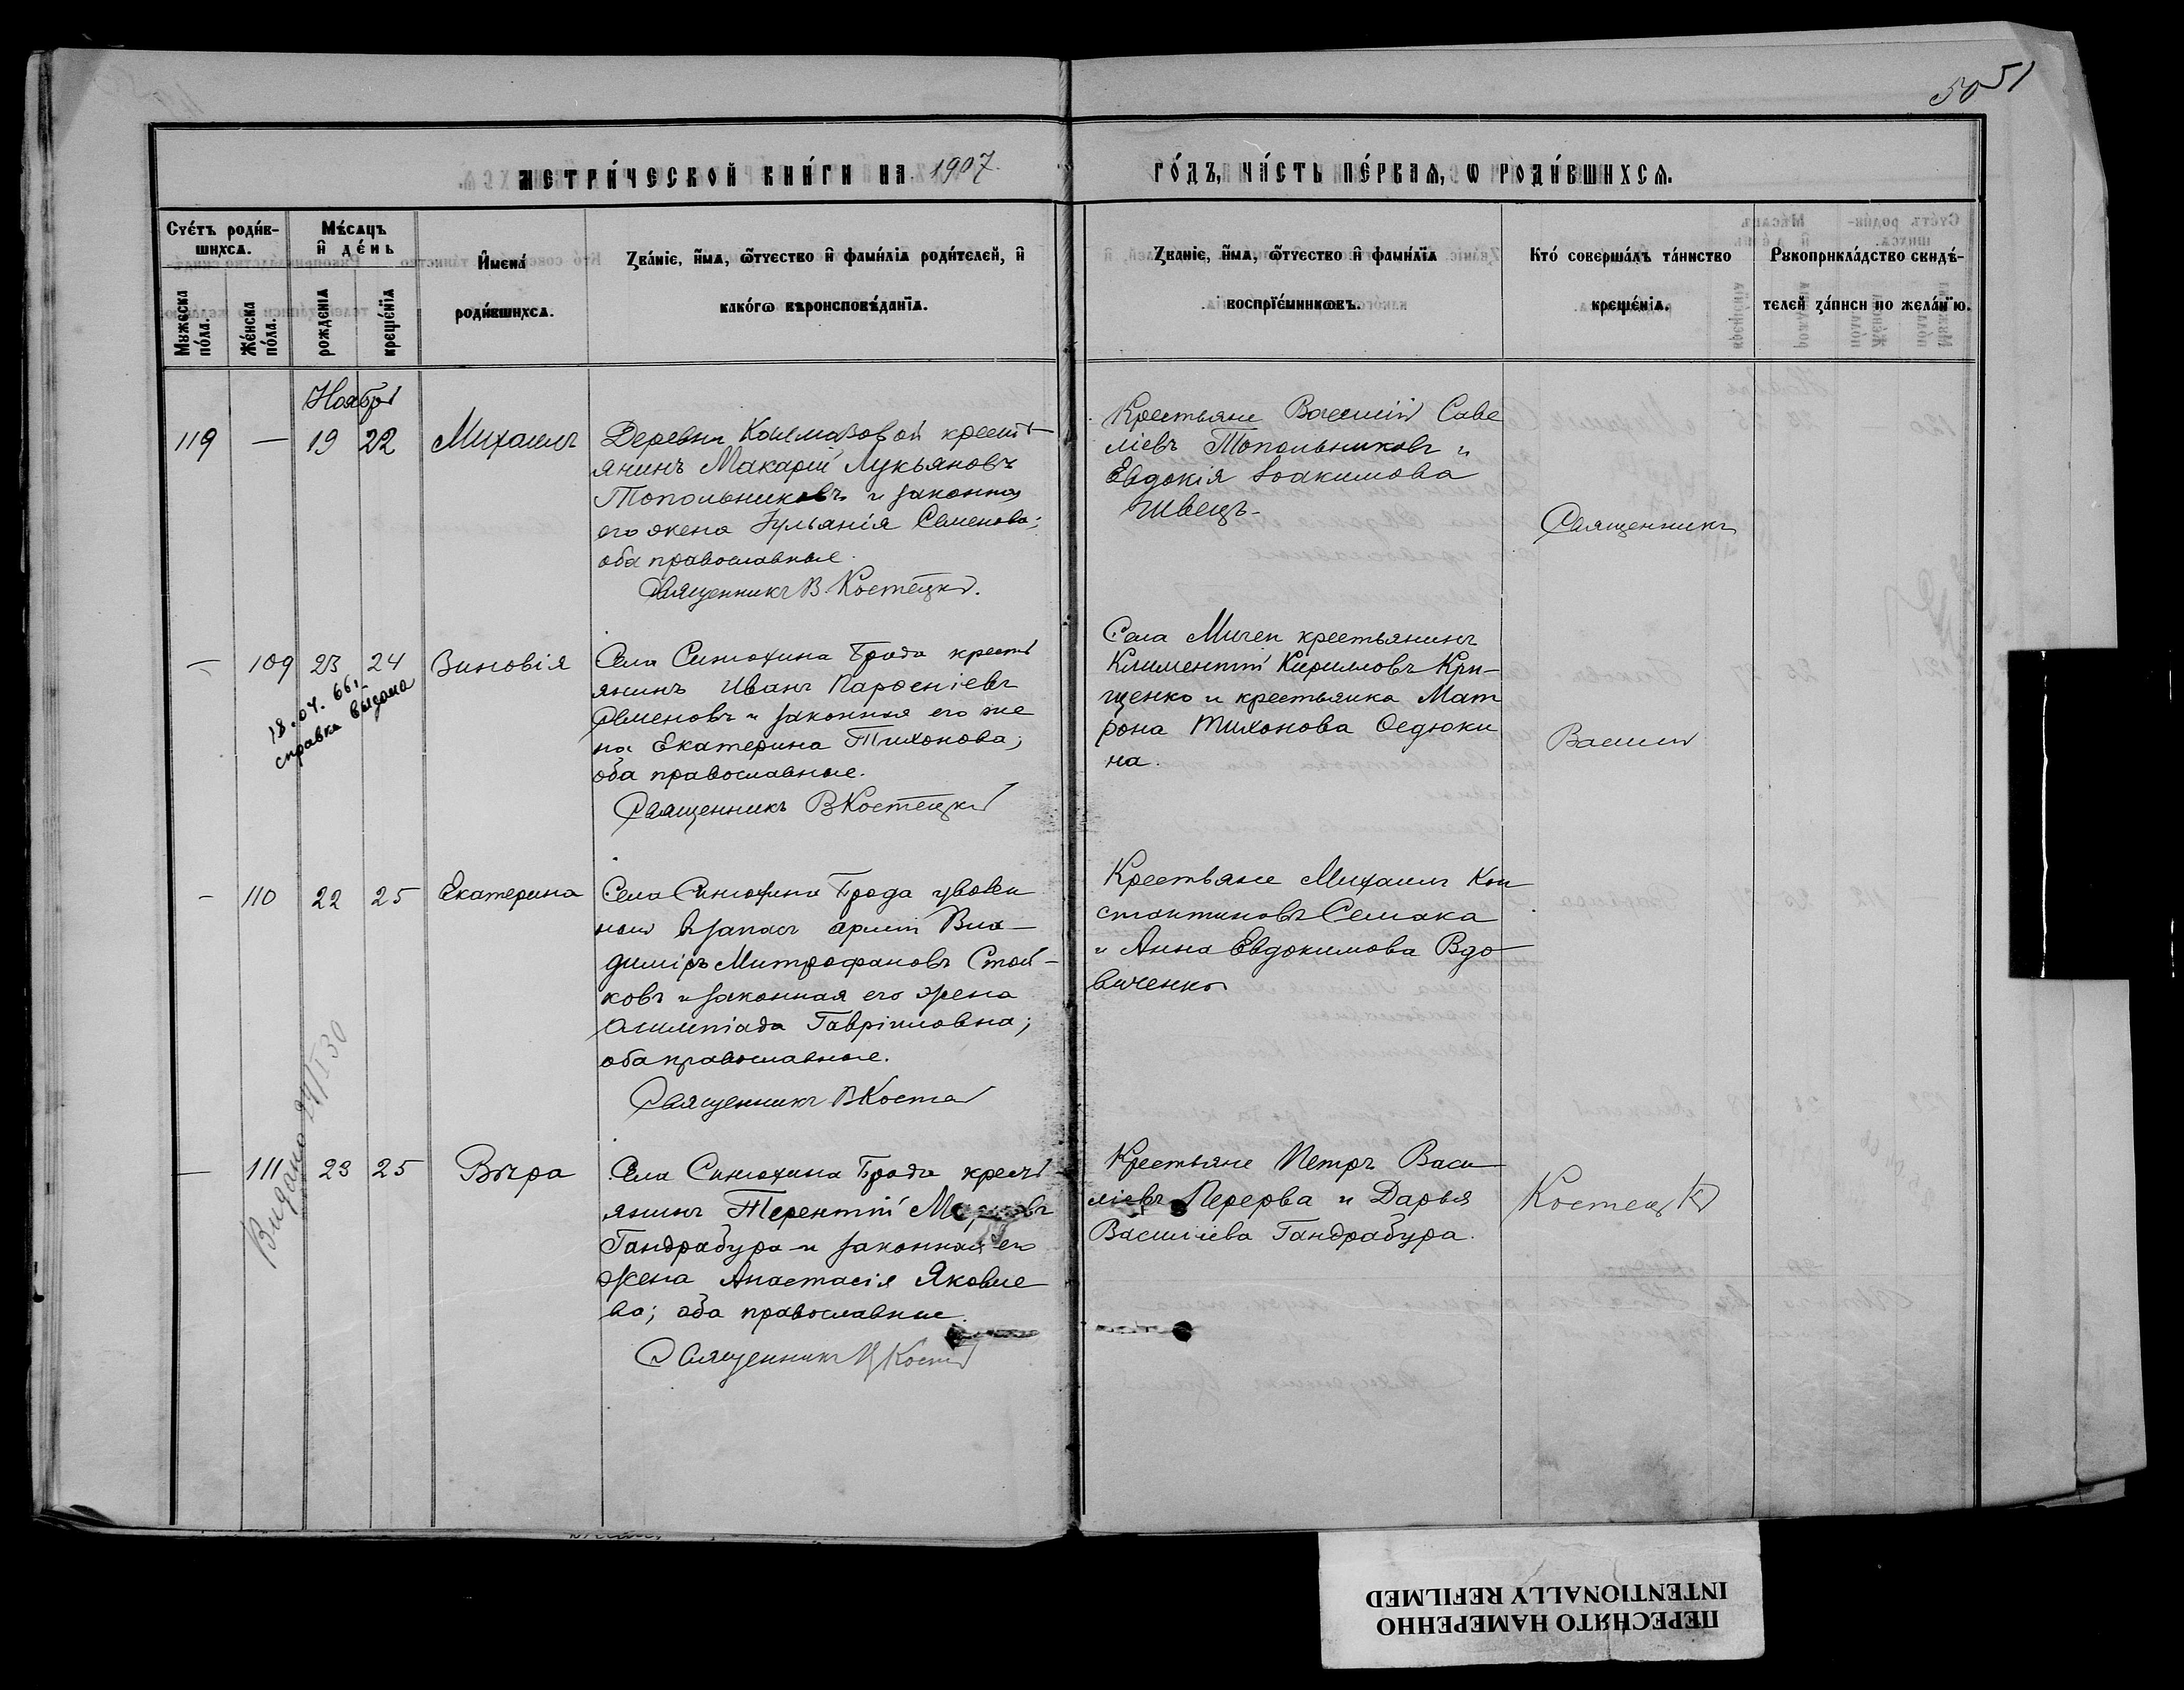 50 51
МЕТРИ́ЧЕСКОЙ КНИ́ГИ НА 1907 ГО́ДЪ, ЧА́СТЬ ПЕ́РВАѦ, Ѡ РОДИ́ВШИХСѦ.
Сче́тъ роди́в-
шихсѧ.
Мꙋжеска по́ла.
Же́нска по́ла.
Мѣ́сѧцъ
и҆ де́нь
рожде́нїѧ
креще́нїѧ
И҆мена̀
роди́вшихсѧ.
Зва́нїе, и҆́мѧ, ѻ҆́тчество и҆ фами́лїѧ роди́телей, и҆
како́гѡ вѣроисповѣ́данїѧ.
Зва́нїе, и҆́мѧ, ѻ҆́тчество и҆ фами́лїѧ
воспрїе́мникѡвъ.
Кто̀ соверша́лъ та́инство
креще́нїѧ.
Рꙋкоприкла́дство свидѣ́-
телей за́писи по жела́нїю.
Ноября
119 — 19 22 Михаилъ
Деревни Колмазовой кресть
янинъ Макарій Лукьяновъ
Топольниковъ и законная
его жена Іульянія Семенова;
оба православные.
Священникъ В Костецкій.
Крестьяне Василій Саве
ліевъ Топольниковъ и
Евдокія Іоакимова
Швецъ.
Священникъ
— 109 23 24 Зиновія
18.04.66г
справка выдана
Села Синюхина Брода кресть
янинъ Иванъ Парѳеніевъ
Семеновъ и законная его же
на Екатерина Тихонова;
оба православные.
Священникъ В Костецкій
Села Мигеи крестьянинъ
Климентій Кирилловъ Кри-
щенко и крестьянка Мат
рона Тихонова Ѳедюки
на.
Василій
— 110 22 25 Екатерина
Села Синюхина Брода уволен
ный въ запасъ арміи Вла-
диміръ Митрофановъ Стой-
ковъ и законная его жена
Олимпіада Гавріиловна;
оба православные.
Священникъ В Костец
Крестьяне Михаилъ Кон
стантиновъ Семака
и Анна Евдокимова Вдо
виченко
— 111 23 25 Вѣра
Видано 27/I 30
Села Синюхина Брода кресть
янинъ Терентій
Гандрабура и законная его
жена Анастасія Яковле
ва; оба православные.
Священникъ В Костец
Крестьяне Петръ Васи
ліевъ Перерва и Дарья
Василіева Гандрабура.
Костецкій
ПЕРЕСНЯТО НАМЕРЕННО
INTENTIONALLY REFILMED